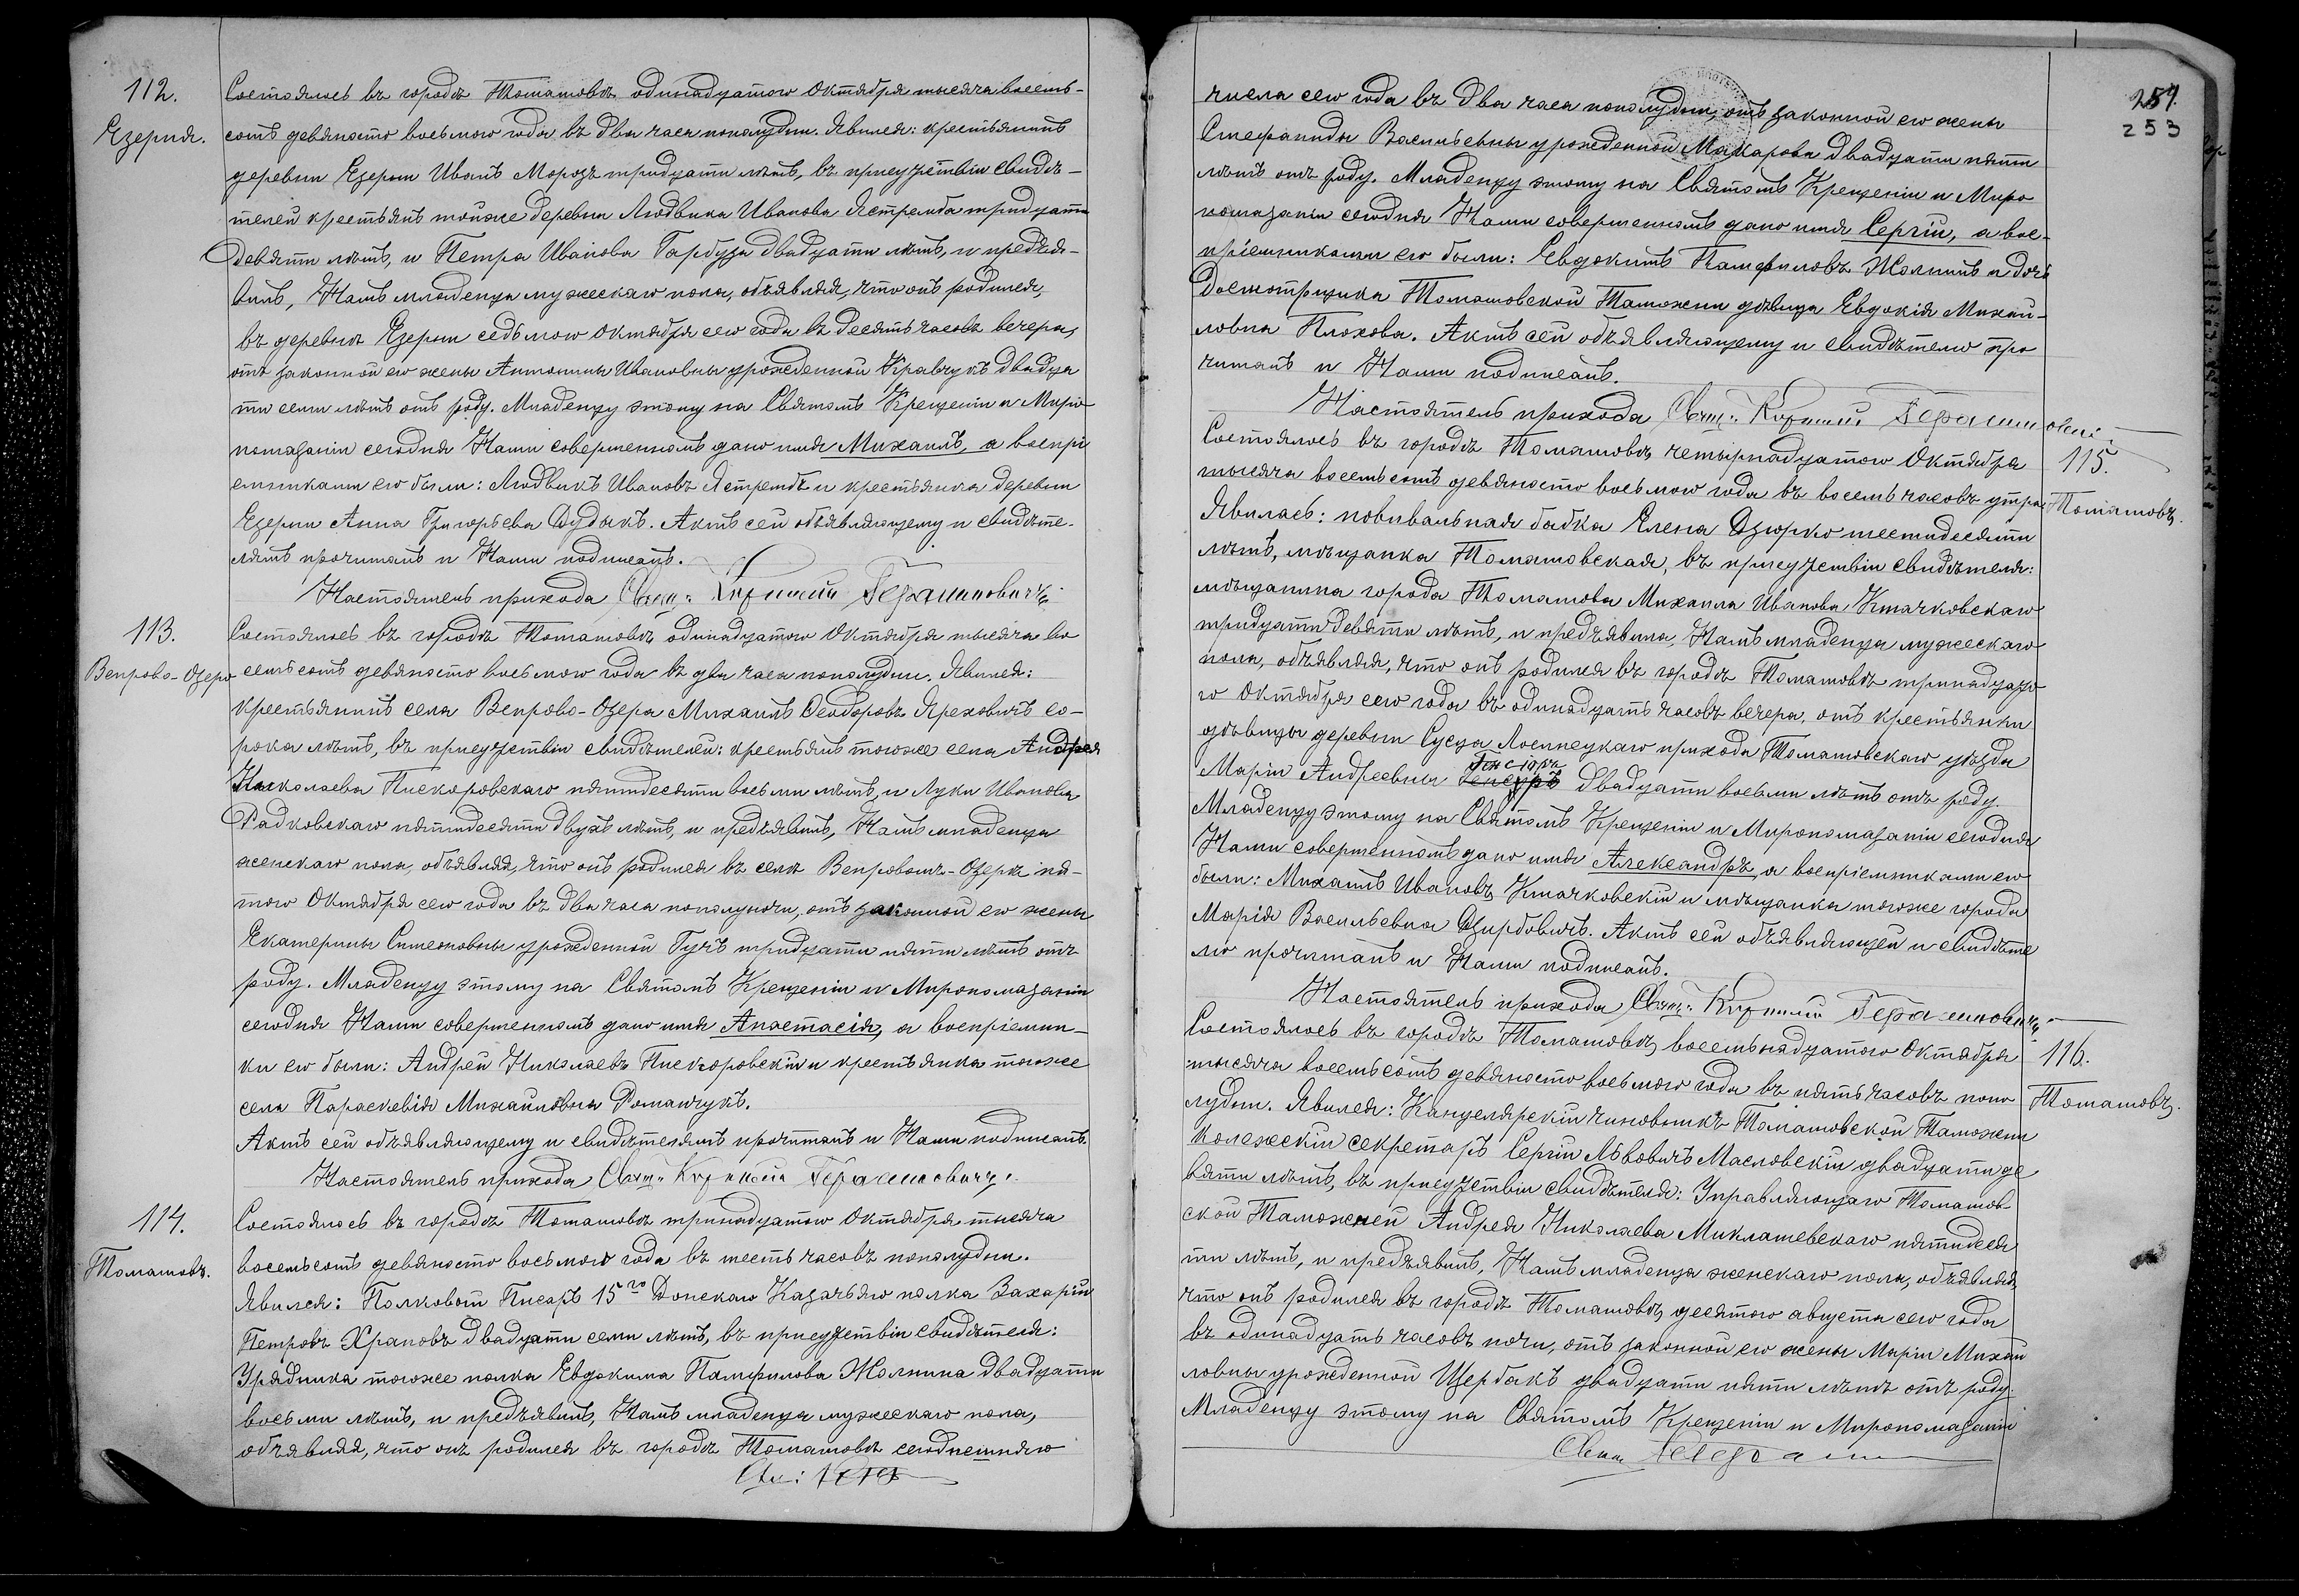 112.
Езерня.
Состоялось въ городѣ Томашовѣ одинадцатого Октября тысяча восемь-
сотъ девяносто восьмого года въ два часа пополудни. Явился: крестьянинъ
деревни Езерни Иванъ Морозъ тридцати лѣтъ, въ присутствіи свидѣ-
телей крестьянъ тойже деревни Людвика Иванова Ястремба тридцати
девяти лѣтъ, и Петра Иванова Гарбуза двадцати лѣтъ, и предъя-
вилъ, Намъ младенца мужескаго пола, объявляя, что онъ родился,
въ деревнѣ Езерни седьмого Октября сего года въ десять часовъ вечера,
отъ законной его жены Антонины Ивановны урожденной Кравчукъ двадца
ти семи лѣтъ отъ роду. Младенцу этому на Святомъ Крещеніи и Миро-
помазаніи сегодня Нами совершенномъ дано имя Михаилъ, а воспрі
емниками его были: Людвикъ Ивановъ Ястрембъ и крестьянка деревни
Езерни Анна Григорьева Дудакъ. Актъ сей объявляющему и свидѣте-
лямъ прочитанъ и Нами подписанъ.
Настоятель прихода Свящ: Корнилій Герасимовичъ
113.
Вепрово-Озеро
Состоялось въ городѣ Томашовѣ одинадцатого Октября тысяча во
семьсотъ девяносто восьмого года въ два часа пополудни. Явился:
крестьянинъ села Вепрово-Озера Михаилъ Ѳеодоровъ Яреховичъ со-
рока лѣтъ, въ присутствіи свидѣтелей: крестьянъ тогоже села Андрея
Николаева Пискоровскаго пятидесяти восьми лѣтъ, и Луки Иванова
Радковскаго пятидесяти двухъ лѣтъ, и предъявилъ, Намъ младенца
женскаго пола, объявляя, что онъ родился въ селѣ Вепровомъ-Озерѣ пя-
того Октября сего года въ два часа пополуночи, отъ законной его жены
Екатерины Симеоновны урожденной Гучъ тридцати пяти лѣтъ отъ
роду. Младенцу этому на Святомъ Крещеніи и Миропомазаніи
сегодня Нами совершенномъ дано имя Анастасія, а воспріемни-
ки его были: Андрей Николаевъ Пискоровскій и крестьянка тогоже
села Параскевія Михайловна Романчукъ.
Актъ сей объявляющему и свидѣтелямъ прочитанъ и Нами подписанъ.
Настоятель прихода Свящ: Корнилій Герасимовичъ.
114.
Томашовъ.
Состоялось въ городѣ Томашовѣ тринадцатого Октября тысяча
восемьсотъ девяносто восьмого года въ шесть часовъ пополудни.
Явился: Полковой Писарь 15го Донскаго Казачьяго полка Захарій
Петровъ Храповъ двадцати семи лѣтъ, въ присутствіи свидѣтеля:
Урядника тогоже полка Евдокима Памфилова Жолнина двадцати
восьми лѣтъ, и предъявилъ, Намъ младенца мужескаго пола,
объявляя, что онъ родился въ городѣ Томашовѣ сегоднешняго
257
253
числа сего года въ два часа пополудни, отъ законной его жены
Стефаниды Васильевны урожденной Макарова двадцати пяти
лѣтъ отъ роду. Младенцу этому на Святомъ Крещеніи и Миро
помазаніи сегодня Нами совершенномъ дано имя Сергій, а вос-
пріемниками его были: Евдокимъ Памфиловъ Жолнинъ и дочь
Досмотрщика Томашовской Таможни дѣвица Евдокія Михай-
ловна Плохова. Актъ сей объявляющему и свидѣтелю про
читанъ и Нами подписанъ.
Настоятель прихода Свящ: Корнилій Герасимовичъ
115.
Томашовъ.
Состоялось въ городѣ Томашовѣ четырнадцатого Октября
тысяча восемьсотъ девяносто восьмого года въ восемь часовъ утра.
Явилась: повивальная бабка Елена Дзюрко шестидесяти
лѣтъ, мѣщанка Томашовская, въ присутствіи свидѣтеля:
мѣщанина города Томашова Михаила Иванова Кмачковскаго
тридцати девяти лѣтъ, и предъявила, Намъ младенца мужескаго
пола, объявляя, что онъ родился въ городѣ Томашовѣ тринадцато
го Октября сего года въ одинадцать часовъ вечера, отъ крестьянки
дѣвицы деревни Сусца Лосинецкаго прихода Томашовскаго уѣзда
Маріи Андреевны двадцати восьми лѣтъ отъ роду.
Младенцу этому на Святомъ Крещеніи и Миропомазаніи сегодня
Нами совершенномъ дано имя Александръ, а воспріемниками его
были: Михаилъ Ивановъ Кмачковскій и мѣщанка тогоже города
Марія Васильевна Дзирбовичъ. Актъ сей объявляющей и свидѣте
лю прочитанъ и Нами подписанъ.
Настоятель прихода Свящ: Корнилій Герасимовичъ
116.
Томашовъ.
Состоялось въ городѣ Томашовѣ восемьнадцатого Октября
тысяча восемьсотъ девяносто восьмого года въ пять часовъ попо
лудни. Явился: Канцелярскій чиновникъ Томашовской Таможни
Колежскій секретарь Сергій Львовичъ Масловскій двадцати де
вяти лѣтъ, въ присутствіи свидѣтеля: Управляющаго Томашов-
ской Таможней Андрея Николаева Миклашевскаго пятидеся
ти лѣтъ, и предъявилъ, Намъ младенца женскаго пола, объявляя,
что онъ родился въ городѣ Томашовѣ десятого августа сего года
въ одинадцать часовъ ночи, отъ законной его жены Маріи Михай
ловны урожденной Щербакъ двадцати пяти лѣтъ отъ роду.
Младенцу этому на Святомъ Крещеніи и Миропомазаніи